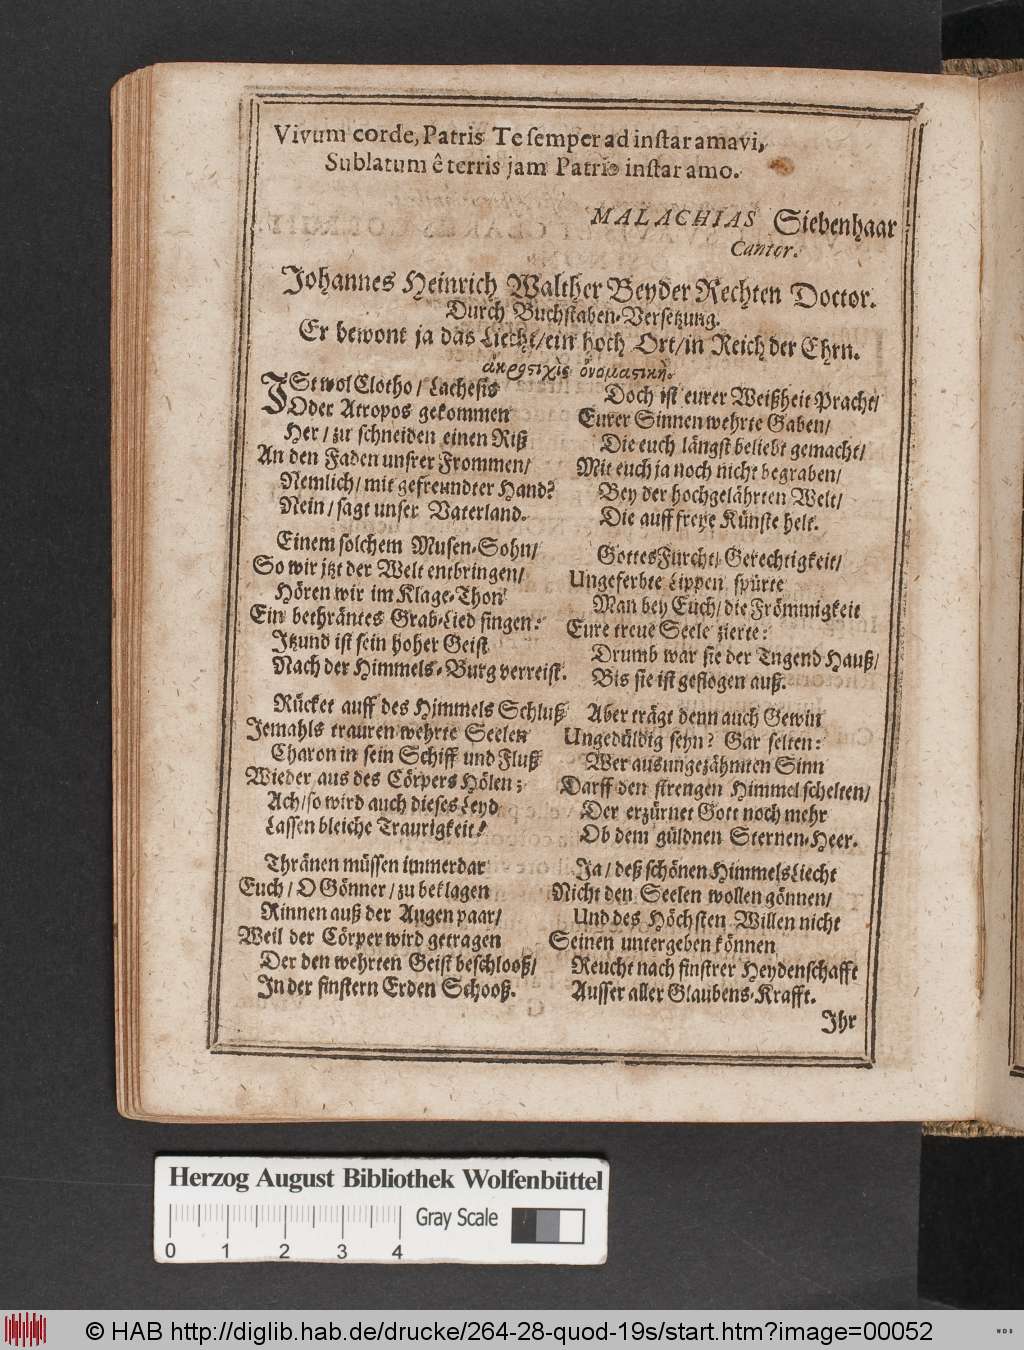 Vivum corde, Patris Te semper ad instar amavi,
Sublatum ê terris jam Patris instar amo.
MALACHIAS Siebenhaar
Cantor.
Johannes Heinrich Walther Beyder Rechten Doctor.
Durch Buchstaben-Versetzung.
Er bewont ja das Liecht/ein hoch Ort/in Reich der Ehrn.
ἀκροστιχὶς ὀνομαστική.
JSt wol Clotho/ Lachesis
Oder Atropos gekommen
Her/ zu schneiden einen Riß
An den Faden unsrer Frommen/
Nemlich/ mit gefreundter Hand?
Nein/ sagt unser Vaterland.
Einem solchem Musen-Sohn/
So wir jtzt der Welt entbringen/
Hören wir im Klage-Thon
Ein bethräntes Grab-Lied singen:
Jtzund ist sein hoher Geist
Nach der Himmels-Burg verreist.
Rücket auff des Himmels Schluß
Jemahls trauren wehrte Seelen
Charon in sein Schiff und Fluß
Wieder aus des Cörpers Hölen;
Ach/ so wird auch dieses Leyd
Lassen bleiche Traurigkeit!
Thränen müssen immerdar
Euch/ O Gönner/ zu beklagen
Rinnen auß der Augen paar/
Weil der Cörper wird getragen
Der den wehrten Geist beschlooß/
In der finstern Erden Schooß.
Doch ist eurer Weißheit Pracht/
Eurer Sinnen wehrte Gaben/
Die euch längst beliebt gemacht/
Mit euch ja noch nicht begraben/
Bey der hochgelährten Welt/
Die auff freye Künste helt.
GottesFurcht/ Gerechtigkeit/
Ungeferbte Lippen spürte
Man bey Euch/ die Frömmigkeit
Eure treue Seele zierte:
Drumb war sie der Tugend Hauß/
Bis sie ist geflogen auß.
Aber trägt denn auch Gewin
Ungedüldig seyn? Gar selten:
Wer aus ungezähmten Sinn
Darff den strengen Himmel schelten/
Der erzürnet Gott noch mehr
Ob dem güldnen Sternen-Heer.
Ja/ deß schönen Himmels Liecht
Nicht den Seelen wollen gönnen/
Und des Höchsten Willen nicht
Seinen untergeben können
Reucht nach finstrer Heydenschafft
Ausser aller Glaubens-Krafft.
Jhr
Herzog August Bibliothek Wolfenbüttel
Gray Scale
0 1 2 3 4
© HAB http://diglib.hab.de/drucke/264-28-quod-19s/start.htm?image=00052